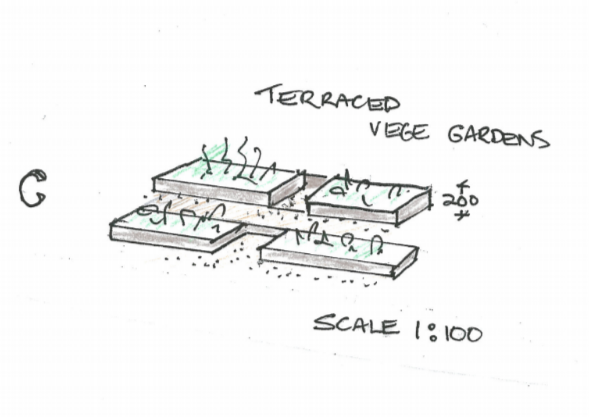 TERRACED
VEGE GARDENS
C
200
SCALE 1:100